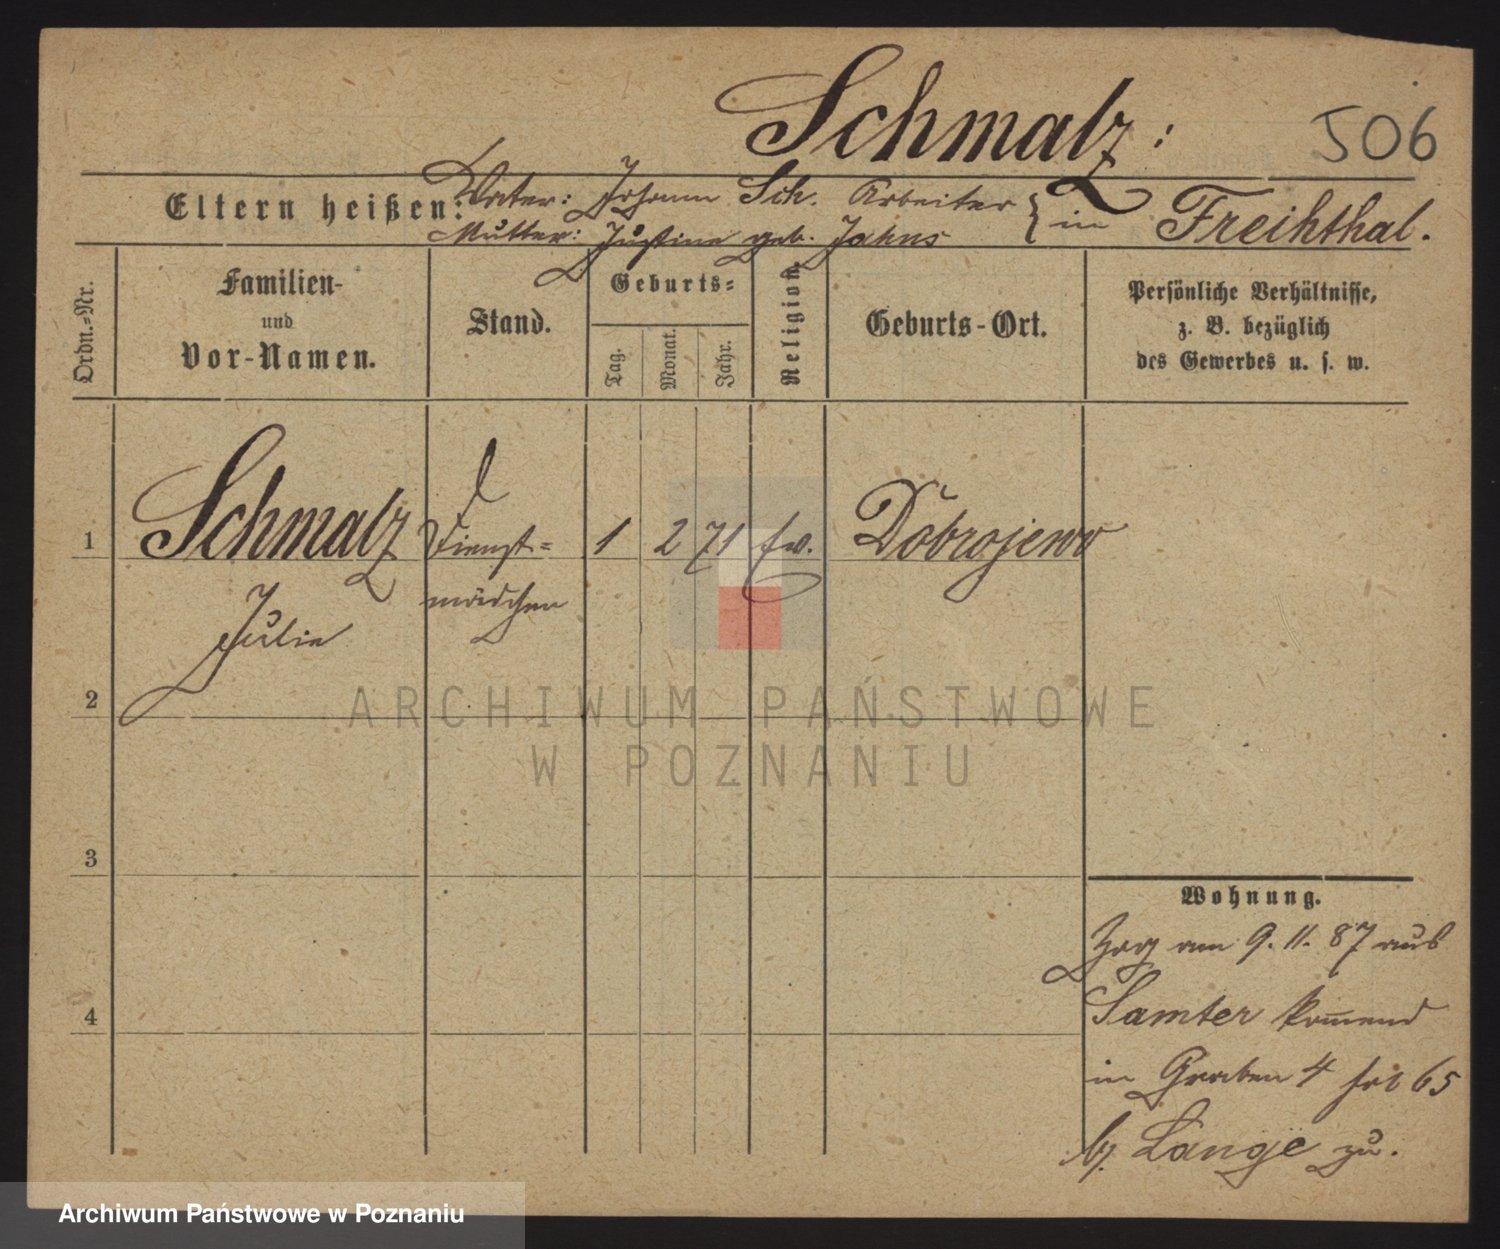 Schmalz:
506
Eltern heißen:
Vater: Johann Sch. Arbeiter
Mutter: Justine geb. Jahns
} in Freihthal.
Ordn.-Nr.
Familien-
und
Vor-Namen.
Stand.
Geburts-
Tag.
Monat.
Jahr.
Religion.
Geburts-Ort.
Persönliche Verhältnisse,
z. B. bezüglich
des Gewerbes u. s. w.
1 Schmalz Dienst= 1 2 71 ev. Dobrojewo
Julie mädchen
2
3
4
Wohnung.
Zog am 9. 11. 87 aus
Samter kom̄end
in Graben 4 65
b. Lange zu.
ARCHIWUM PAŃSTWOWE
W POZNANIU
Archiwum Państwowe w Poznaniu